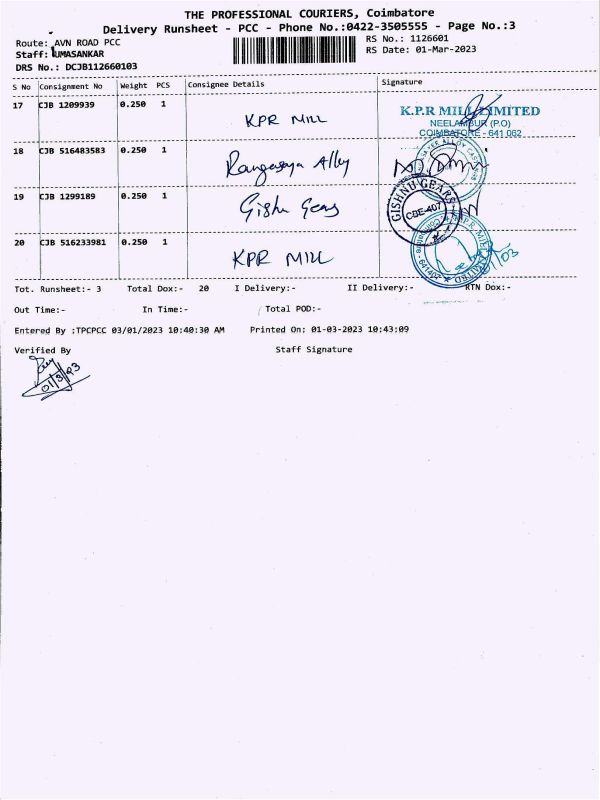 THE PROFESSIONAL COURIERS, Coimbatore
Delivery Runsheet - PCC - Phone No.:0422-3505555 - Page No.:3
Route: AVN ROAD PCC RS No.: 1126601
Staff: UMASANKAR RS Date: 01-Mar-2023
DRS No.: DCJB112660103
S No Consignment No Weight PCS Consignee Details Signature
17 CJB 1209939 0.250 1 KPR MILL K.P.R MILL LIMITED
NEELAMBUR (P.O)
COIMBATORE - 641 062
18 CJB 516483583 0.250 1 Alloy
19 CJB 1299189 0.250 1 GISHNU GEARS CBE-407
20 CJB 516233981 0.250 1 KPR MILL K.P.R. MILL LIMITED
Tot. Runsheet:- 3 Total Dox:- 20 I Delivery:- II Delivery:- RTN Dox:-
Out Time:- In Time:- Total POD:-
Entered By :TPCPCC 03/01/2023 10:40:30 AM Printed On: 01-03-2023 10:43:09
Verified By Staff Signature
01/3/23